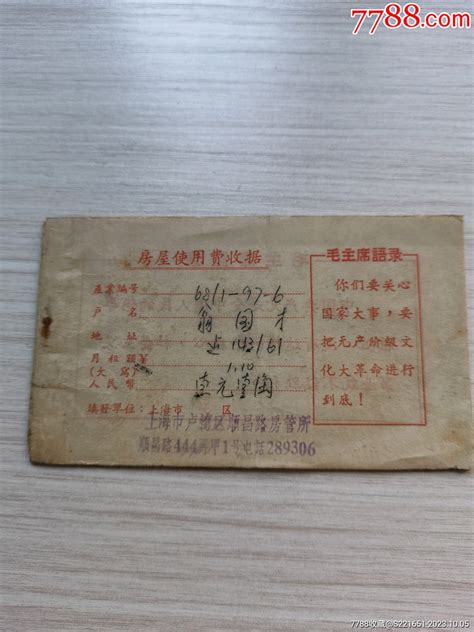 7788.com
房屋使用费收据
产业编号 68/1-97-6
户名 国才
地址 143/61
月租额
(大写) 1.10
人民币 壹元壹角
填发单位:上海市 区
上海市卢湾区顺昌路房管所
顺昌路444弄甲1号电话289306
毛主席語录
你们要关心
国家大事，要
把无产阶级文
化大革命进行
到底！
7788收藏@S221651-2023.10.05